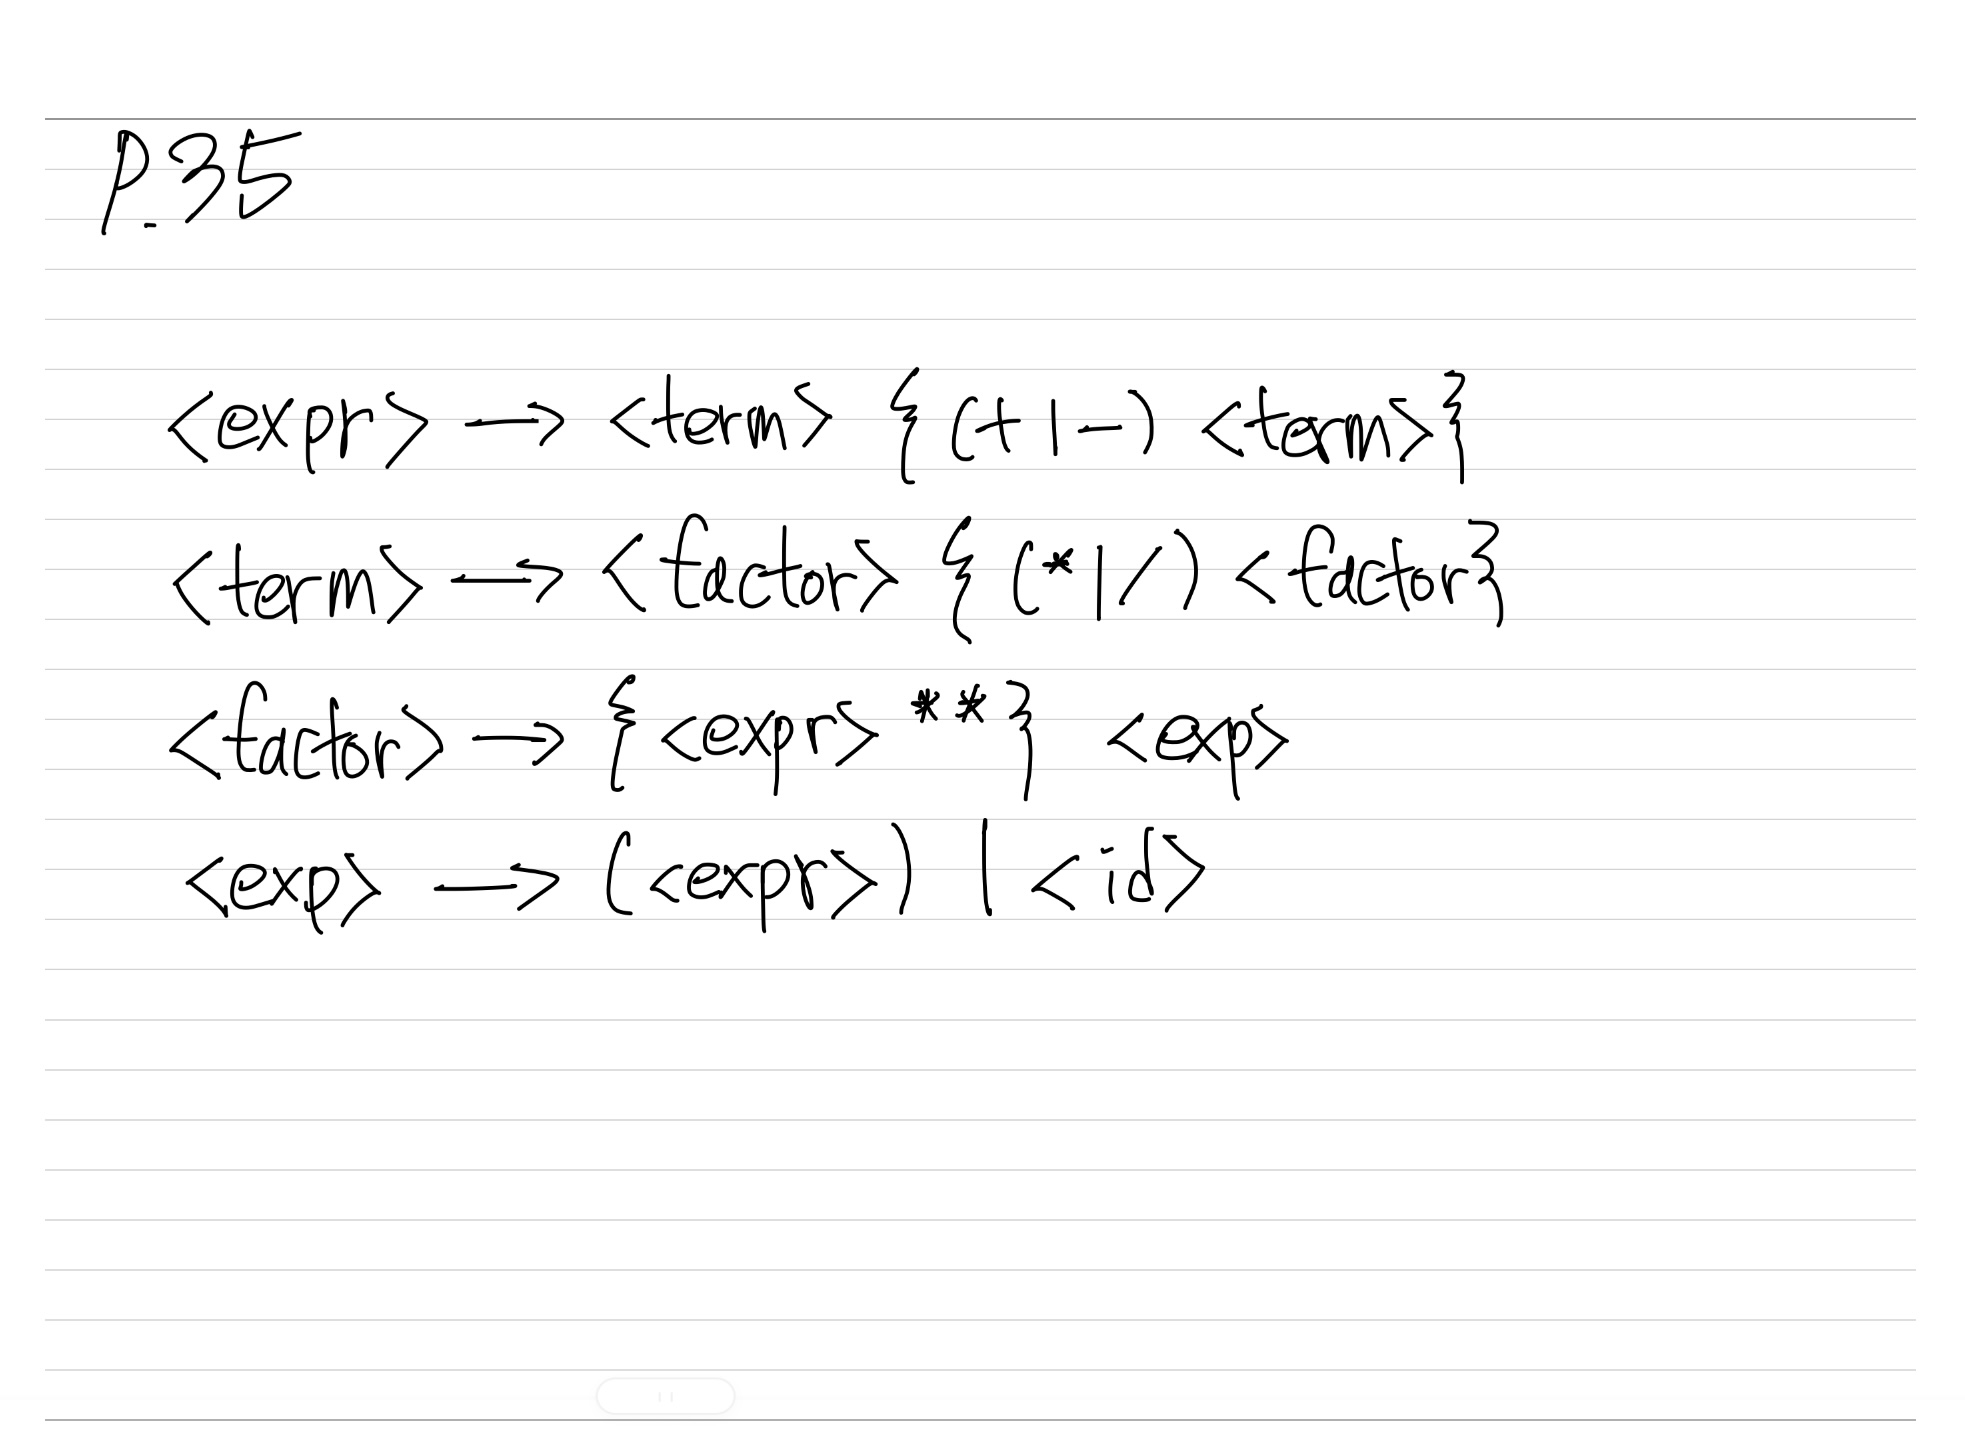 P.35
<expr> → <term> {(+|-) <term>}
<term> → <factor> {(*|/) <factor}
<factor> → {<expr> **} <exp>
<exp> → (<expr>) | <id>